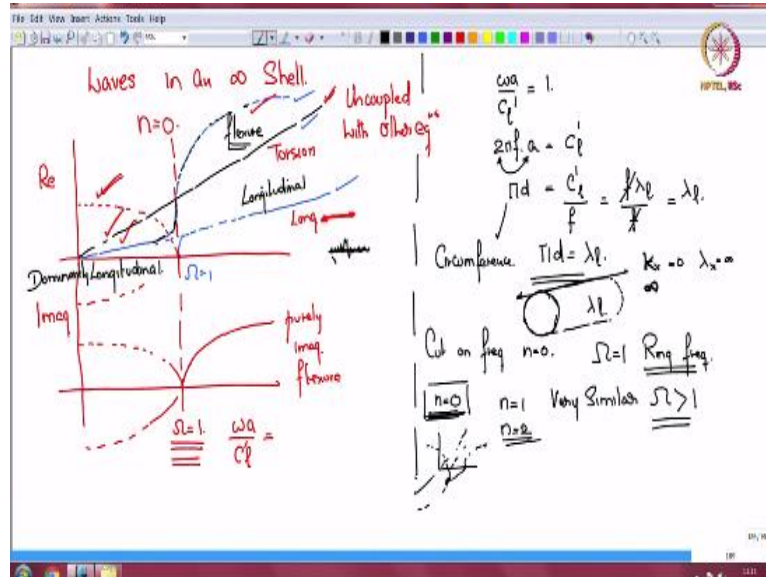 File Edit View Insert Actions Tools Help
NPTEL, IISc
Waves in an ∞ Shell.
n=0.
flexure
Uncoupled
with other eqns
Re
Torsion
Longitudinal
Long
Dominantly Longitudinal.
Ω=1
Imag
purely
imag.
flexure
Ω=1. ωa/Cℓ' =
ωa/Cℓ' = 1.
2πf.a = Cℓ'
Πd = Cℓ'/f = fλℓ/f = λℓ.
Circumference Πd = λℓ. Kx=0 λx=∞
∞
λℓ
Cut on freq n=0. Ω=1 Ring freq.
n=0 n=1 Very Similar Ω>1
n=2